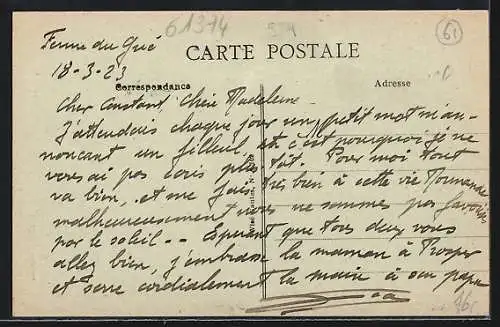 61374
61
Ferme du Gué
CARTE POSTALE
18-3-23
Correspondance
Adresse
Cher Constant, Chère Madeleine -
J'attendais chaque jour un petit mot m'an-
nonçant un filleul, et c'est pourquoi je ne
vous ai pas écris plus tôt. Pour moi tout
va bien, et me fais très bien à cette vie Normande
malheureusement nous ne sommes pas favorisés
par le soleil -- Espérant que tous deux vous
allez bien, j'embrasse la maman à Prosper
et serre cordialement la main à son papa